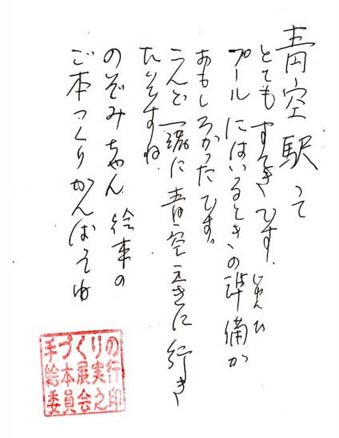 青空駅って
とてもすてきです。
じゅんび
プールにはいるときの準備が
おもしろかったです。
こんど一緒に青空えきに行き
たいですね
のぞみちゃん 絵本の
ご本つくりがんばってね
手づくりの
絵本展実行
委員会之印